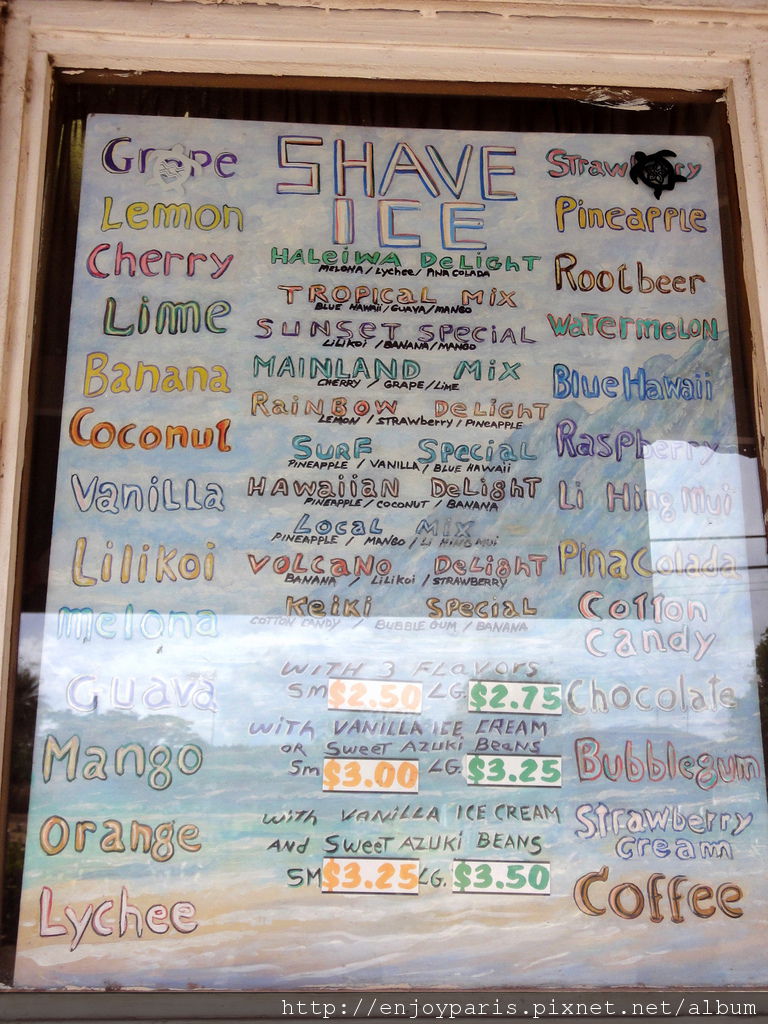 Grape
Lemon
Cherry
Lime
Banana
Coconut
Vanilla
Lilikoi
melona
Guava
Mango
Orange
Lychee
SHAVE
ICE
HALEIWA DELIGHT
MELONA / Lychee / PINA COLADA
TROPICAL MIX
BLUE HAWAII / GUAVA / MANGO
SUNSET SPECIAL
LILIKOI / BANANA / MANGO
MAINLAND MIX
CHERRY / GRAPE / LIME
RAINBOW DELIGHT
LEMON / STRAWBERRY / PINEAPPLE
SURF SPECIAL
PINEAPPLE / VANILLA / BLUE HAWAII
HAWAIIAN DELIGHT
PINEAPPLE / COCONUT / BANANA
LOCAL MIX
PINEAPPLE / MANGO / LI HING MUI
VOLCANO DELIGHT
BANANA / LILIKOI / STRAWBERRY
KEIKI SPECIAL
COTTON CANDY / BUBBLE GUM / BANANA
WITH 3 FLAVORS
SM $2.50 LG. $2.75
WITH VANILLA ICE CREAM
OR SWEET AZUKI BEANS
SM $3.00 LG. $3.25
WITH VANILLA ICE CREAM
AND SWEET AZUKI BEANS
SM $3.25 LG. $3.50
Strawberry
Pineapple
Rootbeer
WATERMELON
Blue Hawaii
Raspberry
Li Hing Mui
Pina Colada
Cotton
Candy
Chocolate
Bubblegum
Strawberry
Cream
Coffee
http://enjoyparis.pixnet.net/album